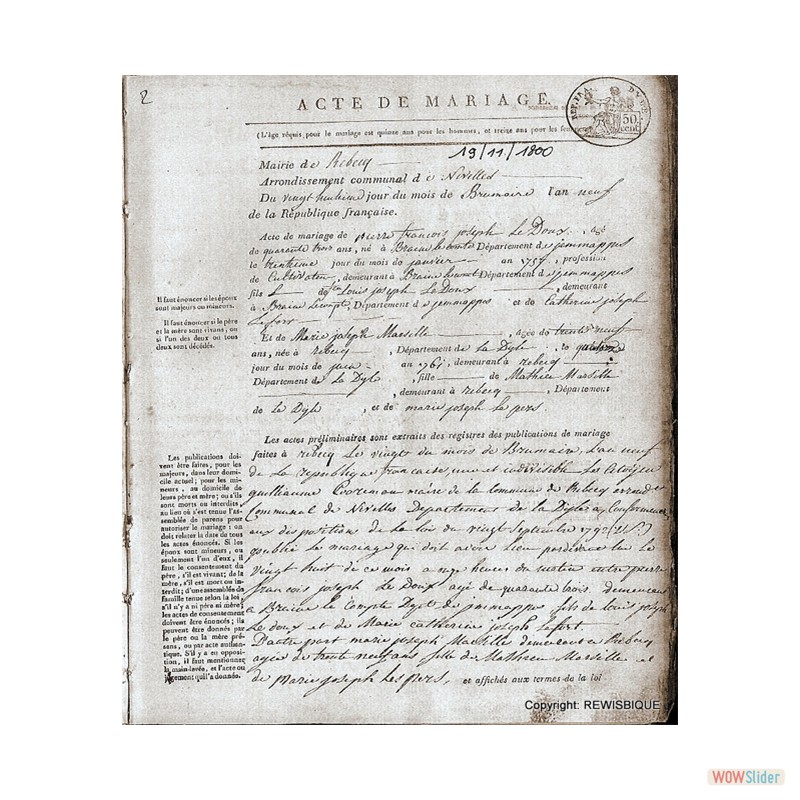 2
ACTE DE MARIAGE.
50
cent.
(L'âge requis pour le mariage est quinze ans pour les hommes, et treize ans pour les femmes
19/11/1800
Mairie de Rebecq
Arrondissement communal de Nivelles
Du vingt huitieme jour du mois de Brumaire l'an neuf
de la République française.
Acte de mariage de pierre francois joseph Le Doux, agé
de quarante trois ans, né à Braine le comte Département de jemmappes
le trentieme jour du mois de janvier an 1757, profession
de Cultivateur, demeurant à Braine lecomt Département de jemmappes
fils Louis joseph Le Doux, demeurant
à Braine Lecompte, Département de jemmappes et de Catherine joseph
Lefort
Et de Marie joseph Marsille, agée de trente neuf
ans, née à rebecq, Département de La Dyle, le quatorze
jour du mois de an 1761, demeurant à rebecq
Département de La Dyle, fille de Mathieu Marsille
, demeurant à rebecq, Département
de La Dyle, et de marie joseph Le pers.
Il faut énoncer si les époux
sont majeurs ou mineurs.
Il faut énoncer si le père
et la mère sont vivans, ou
si l'un des deux ou tous
deux sont décédés.
Les actes préliminaires sont extraits des registres des publications de mariage
faites à rebecq Le vingt du mois de Brumaire, L'an neuf
de La republique francaise, une et indivisible Le Citoyen
guilliaume maire de La Commune de Rebecq
Communal de Nivelles Departement de La Dyle a Conformement
aux disposition de La Loi du vingt Septembre 1792
publié Le mariage qui doit avoir Lieu Le
vingt huit de ce mois a heures du matin entre pierre
francois joseph Le Doux agé de quarante trois demeurant
a Braine Le Compte Dept de jemmappes, fils de Louis joseph
Le doux et de Marie Catherine joseph Lefort
D'autre part marie joseph Marsille demeurant a Rebecq
agée de trente neuf ans fille de Mathieu Marsille et
de Marie joseph Les pers, et affichés aux termes de la loi
Les publications doi-
vent être faites, pour les
majeurs, dans leur domi-
cile actuel; pour les mi-
neurs, au domicile de
leurs père et mère; ou s'ils
sont morts ou interdits,
au lieu où s'est tenue l'as-
semblée de parens pour
autoriser le mariage: on
doit relater la date de tous
les actes énoncés. Si les
époux sont mineurs, ou
seulement l'un d'eux, il
faut le consentement du
père, s'il est vivant; de la
mère, s'il est mort ou in-
terdit; d'une assemblée de
famille tenue selon la loi,
s'il n'y a ni père ni mère;
les actes de consentement
doivent être énoncés; ils
peuvent être donnés par
le père ou la mère pré-
sens, ou par acte authen-
tique. S'il y a eu opposition,
il faut mentionner
la main-levée, et l'acte ou
jugement qui l'a donnée.
Copyright: REWISBIQUE
WOWSlider